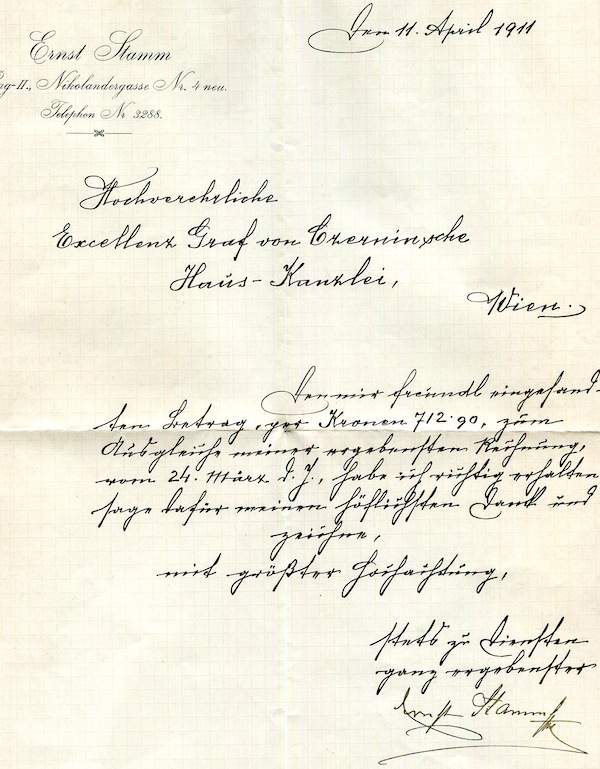 Den 11. April 1911
Ernst Stamm
ag-II., Nikolandergasse Nr. 4 neu.
Telephon Nr. 3288.
Hochverehrliche
Excellenz Graf von Czernin'sche
Haus-Kanzlei,
Wien.
Den mir freundl eingesand-
ten Betrag, per Kronen 712·90, zum
Ausgleiche meiner ergebensten Rechnung,
vom 24. März d. J., habe ich richtig erhalten
sage dafür meinen höflichsten Dank und
zeichne,
mit größter Hochachtung,
stets zu Diensten
ganz ergebenster
Ernst Stamm